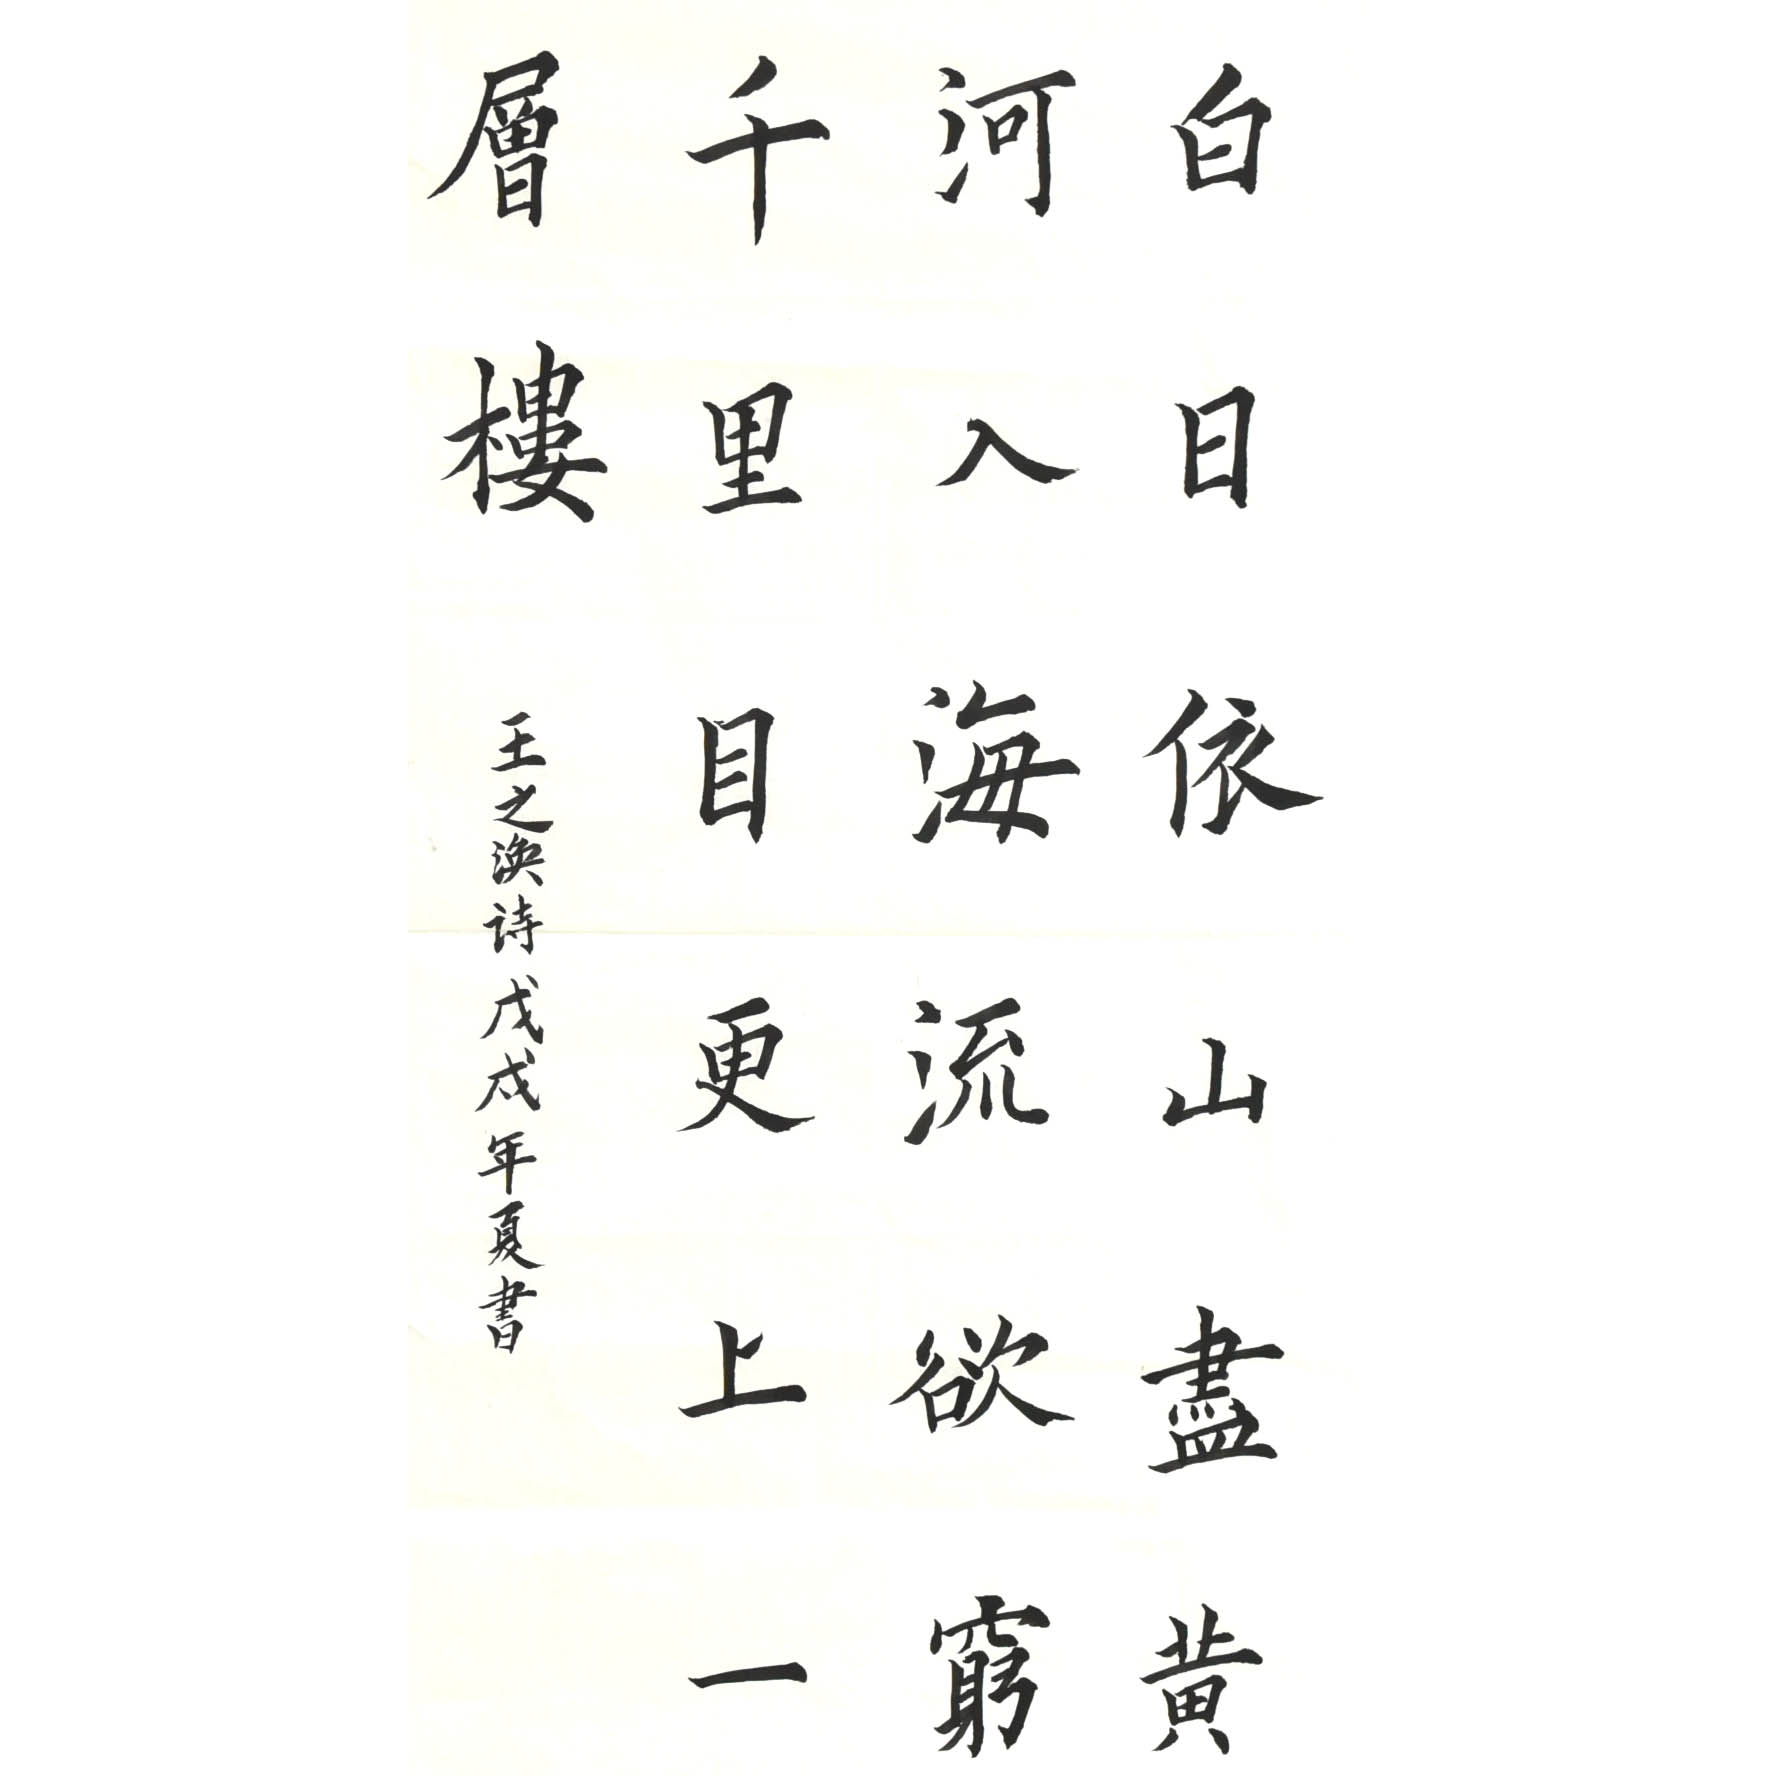 白日依山盡黄
河入海流欲窮
千里目更上一
層樓
王之渙诗 戊戌年夏書